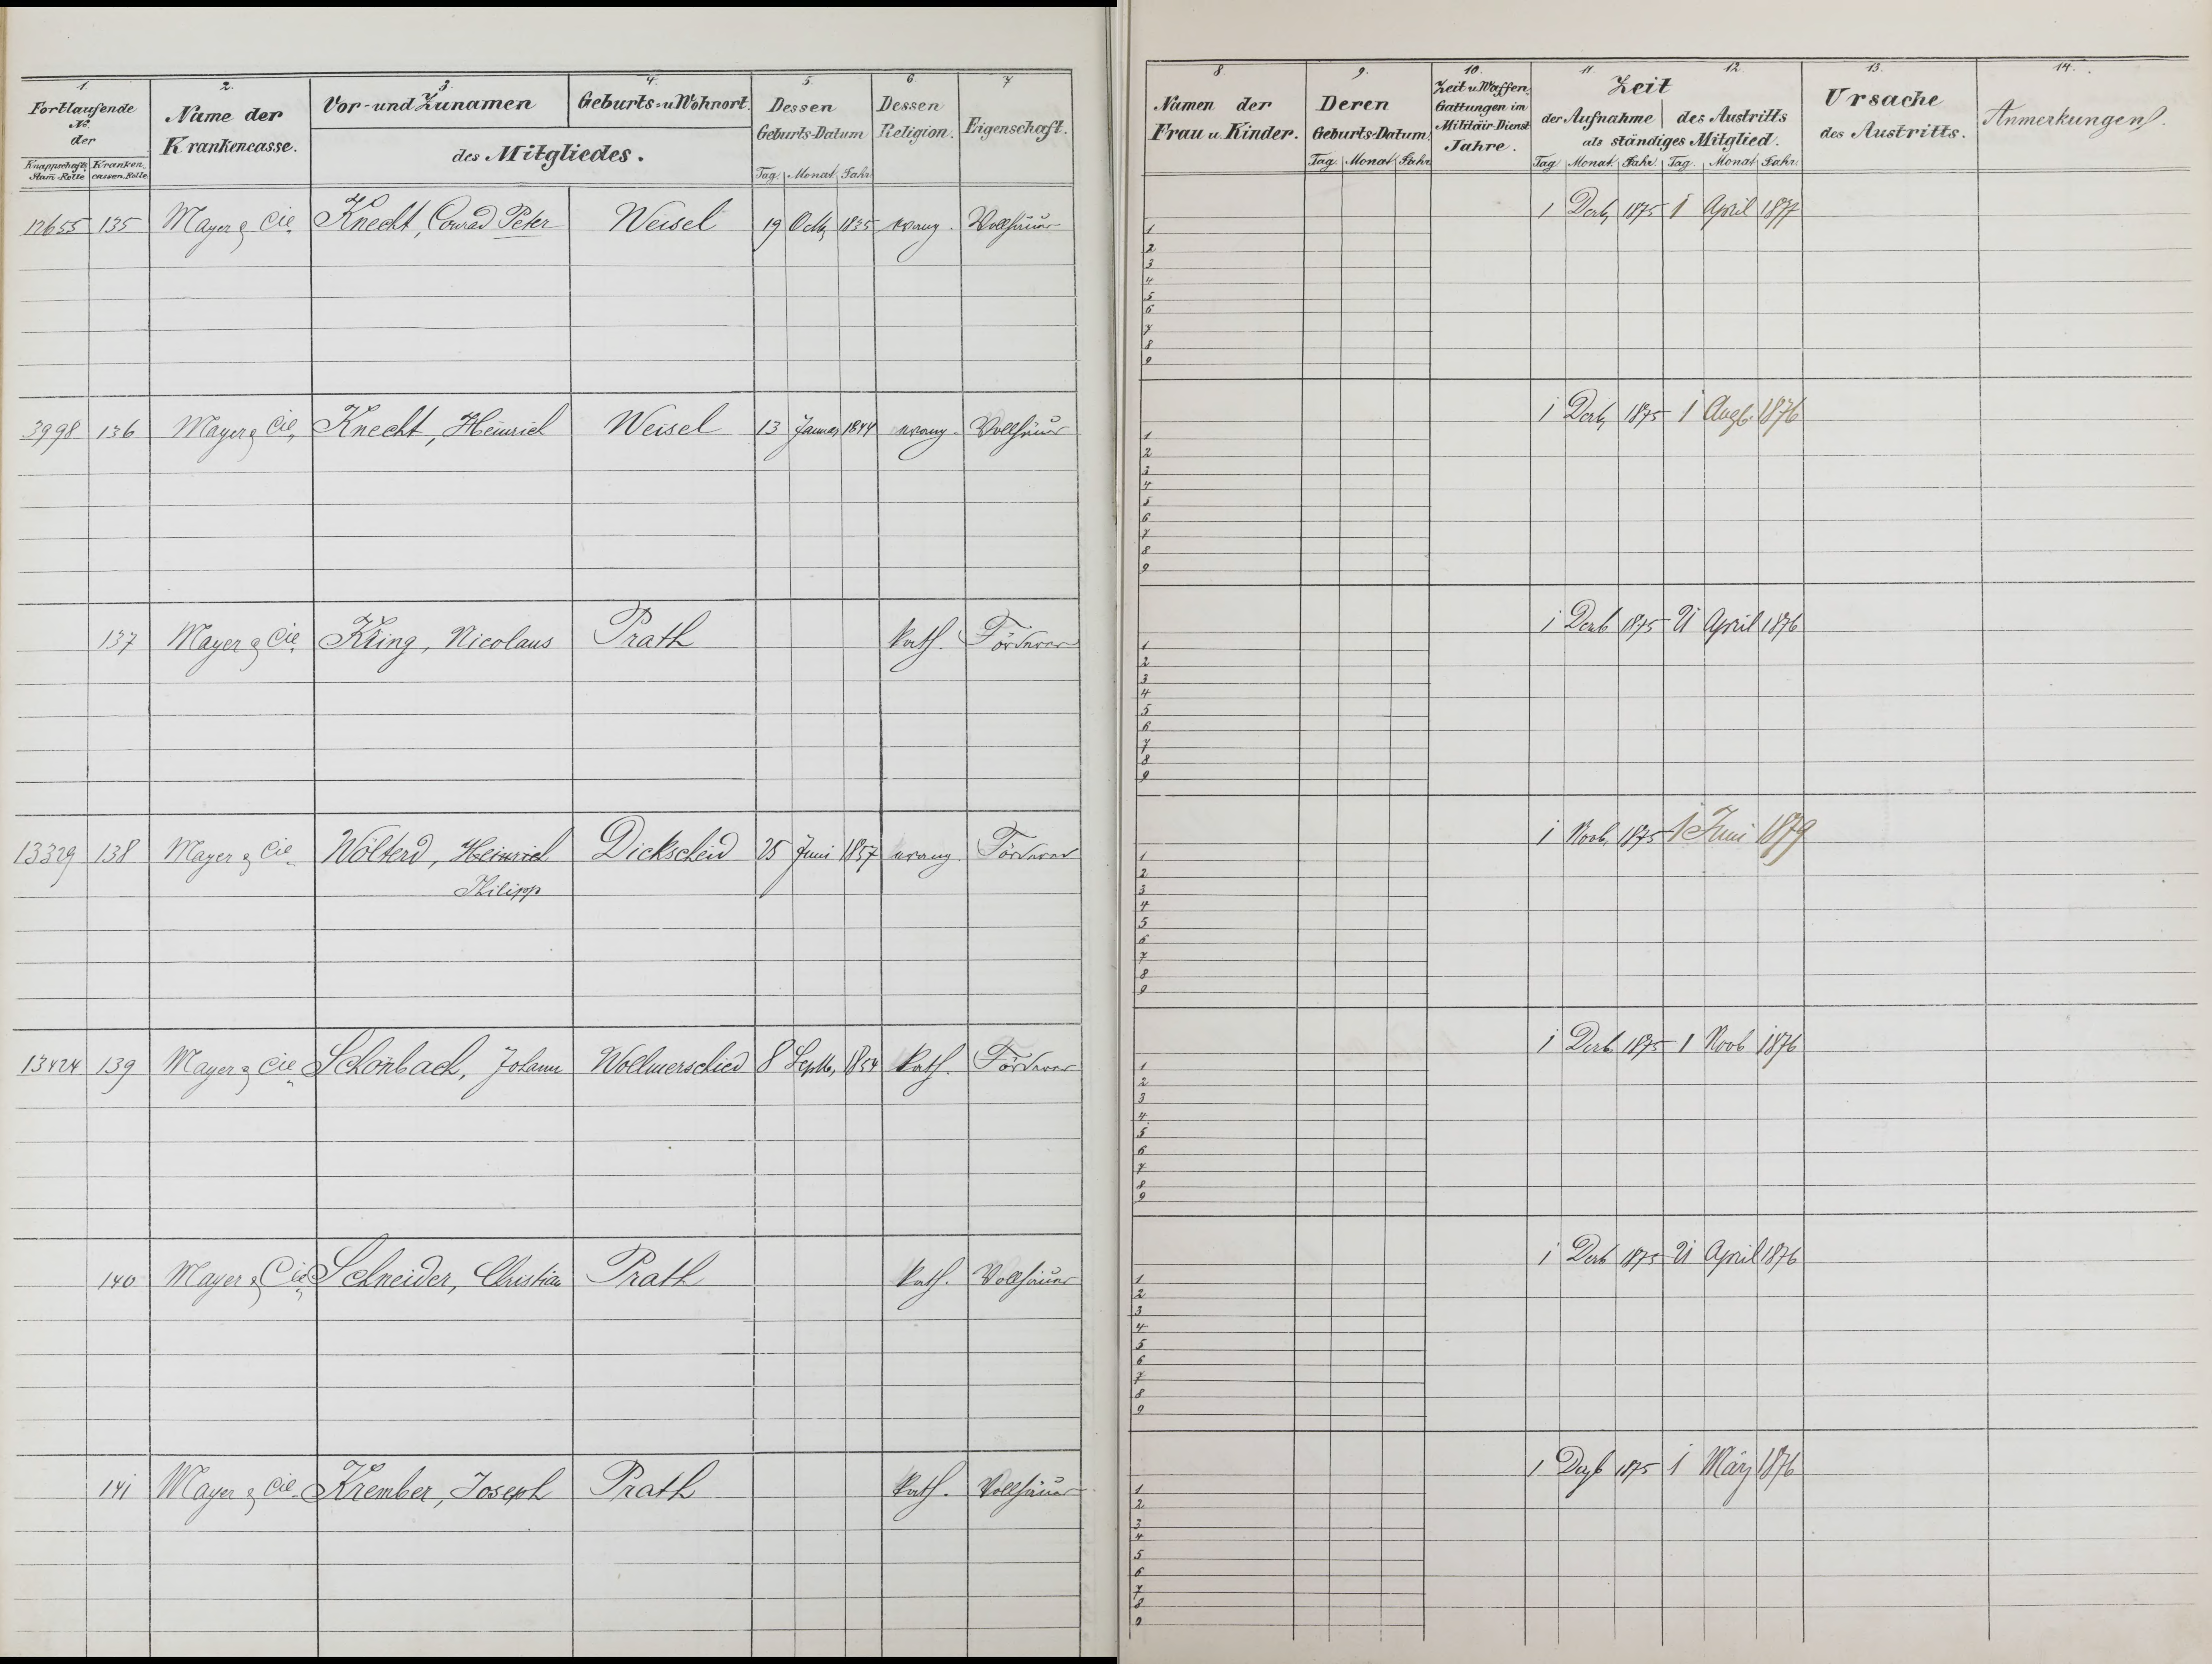 1. 2. 3. 4. 5. 6. 7
Fortlaufende No. der
Knappschafts Stam-Rolle
Kranken-cassen-Rolle
Name der Krankencasse.
Vor- und Zunamen
Geburts- u Wohnort
des Mitgliedes.
Dessen Geburts-Datum
Tag. Monat. Jahr.
Dessen Religion.
Eigenschaft.
12655 135 Mayer & Cie. Knecht, Conrad Peter Weisel 19 Octb. 1835 evang. Vollhäuer
3998 136 Mayer & Cie. Knecht, Heinrich Weisel 13 Januar 1844 evang. Vollhäuer
137 Mayer & Cie. Kling, Nicolaus Prath kath. Förderer
13329 138 Mayer & Cie. Wölferd, Heinrich Dickscheid 25 Juni 1857 evang. Förderer
Philipp
13424 139 Mayer & Cie. Schönbach, Johann Wollmerschied 8 Septb. 1854 kath. Förderer
140 Mayer & Cie. Schneider, Christian Prath kath. Vollhäuer
141 Mayer & Cie. Krember, Joseph Prath kath. Vollhäuer
8. 9. 10. 11. 12. 13. 14.
Namen der Frau u. Kinder.
Deren Geburts-Datum
Tag. Monat Jahr.
Zeit u Waffen-Gattungen im Militär-Dienst Jahre.
Zeit
der Aufnahme des Austritts
als ständiges Mitglied.
Tag Monat. Jahr. Tag. Monat Jahr.
Ursache des Austritts.
Anmerkungen.
1 Decb. 1875 1 April 1877
1
2
3
4
5
6
7
8
9
1 Decb. 1875 1 Augb. 1876
1
2
3
4
5
6
7
8
9
1 Decb 1875 21 April 1876
1
2
3
4
5
6
7
8
9
1 Novb. 1875 1 Juni 1879
1
2
3
4
5
6
7
8
9
1 Decb. 1875 1 Novb 1876
1
2
3
4
5
6
7
8
9
1 Decb 1875 21 April 1876
1
2
3
4
5
6
7
8
9
1 Dezb 1875 1 März 1876
1
2
3
4
5
6
7
8
9